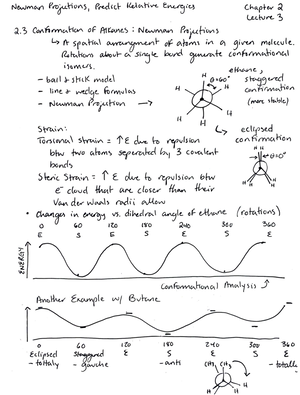 Newman Projections, Predict Relative Energies
Chapter 2
Lecture 3
2.3 Conformation of Alkanes: Newman Projections
↳ A spatial arrangement of atoms in a given molecule.
Rotation about a single bond generate conformational
isomers.
- ball & stick model
- line & wedge formulas
- Newman Projection →
ethane,
staggered
confirmation
(more stable)
H
θ=60°
H
H
H
H
H
↳ eclipsed
confirmation
θ=0°
H
H
H
H
Strain:
Torsional strain = ↑E due to repulsion
btw two atoms seperated by 3 covalent
bonds
Steric Strain = ↑ E due to repulsion btw
e⁻ cloud that are closer than their
Van der Waals radii allow
• Changes in energy vs. dihedral angle of ethane (rotations)
0 60 120 180 240 300 360
E S E S E S E
ENERGY
Conformational Analysis
Another Example w/ Butane
0 60 120 180 240 300 360
Eclipsed Staggered E S E S E
- totally - gauche - anti - totally
CH₃ CH₃
H
H
H
H